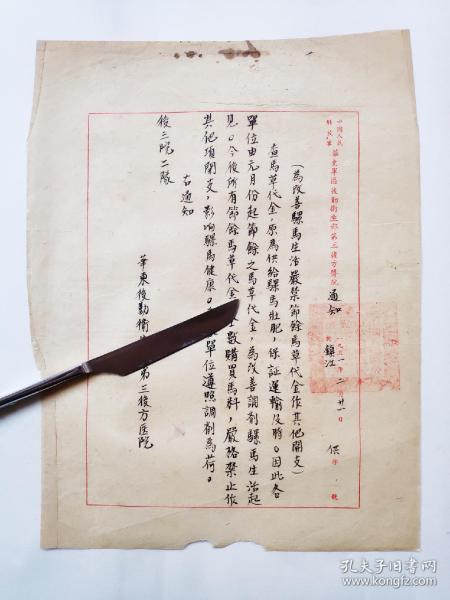 中國人民
解放軍
華東軍區後勤衛生部第三後方醫院 通知
一九五一年二月廿一日
於鎮江
供字 號
(為改善騾馬生活嚴禁節餘馬草代金作其他開支)
查馬草代金,原為供給騾馬壯肥,保証運輸及時。因此各
單位由元月份起節餘之馬草代金,為改善調劑騾馬生活起
見。今後所有節餘馬草代金 數購買馬料,嚴格禁止作
其他項開支,影响騾馬健康。 單位遵照調劑為荷。
右通知
後三院二隊
華東後勤衛 第三後方医院
孔夫子旧书网
www.kongfz.com